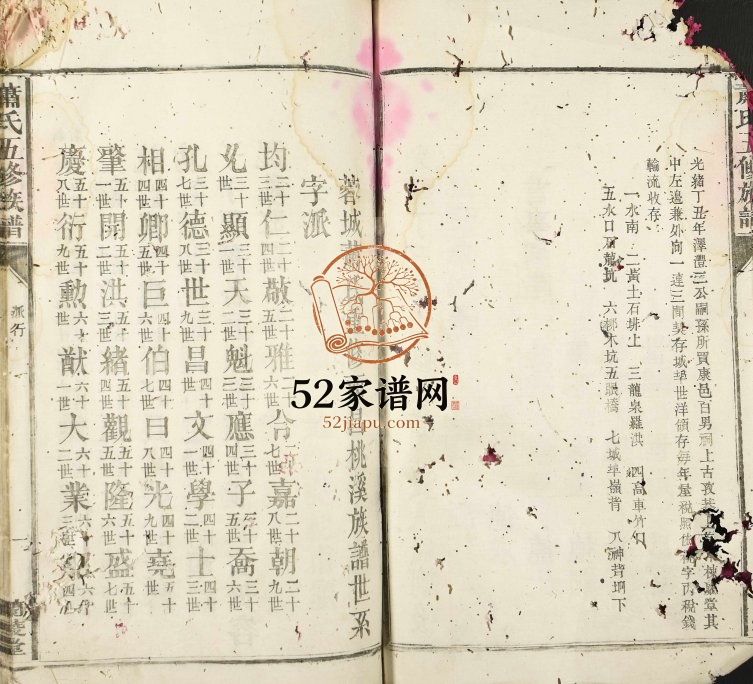 光緒丁丑年澤灃三公嗣孫所買康邑百男上古孜
中左邊兼外向一連三間契存城埠世洋領存每年屋稅照
輪流收存
一水南 二黃土石排上 三龍泉羅洪 四高車竹
五水口 龍坑 六都木坑五眼橋 七城埠嶺背 八神背垇下
蕭氏五修族譜
蓉城 桃溪族譜世系
字派
均二十三世 仁二十四世 敬二十五世 雅二十六世 令二十七世 嘉二十八世 朝二十九世
允三十世 顯三十一世 天三十二世 魁三十三世 應三十四世 子三十五世 喬三十六世
孔三十七世 德三十八世 世三十九世 昌四十世 文四十一世 學四十二世 士四十三世
相四十四世 卿四十五世 巨四十六世 伯四十七世 曰四十八世 光四十九世 堯五十世
肇五十一世 開五十二世 洪五十三世 緒五十四世 觀五十五世 隆五十六世 盛五十七世
慶五十八世 衍五十九世 勳六十世 猷六十一世 大六十二世 業六十三世
蕭氏五修族譜
派行
蘭陵堂
52家谱网
52jiapu.com